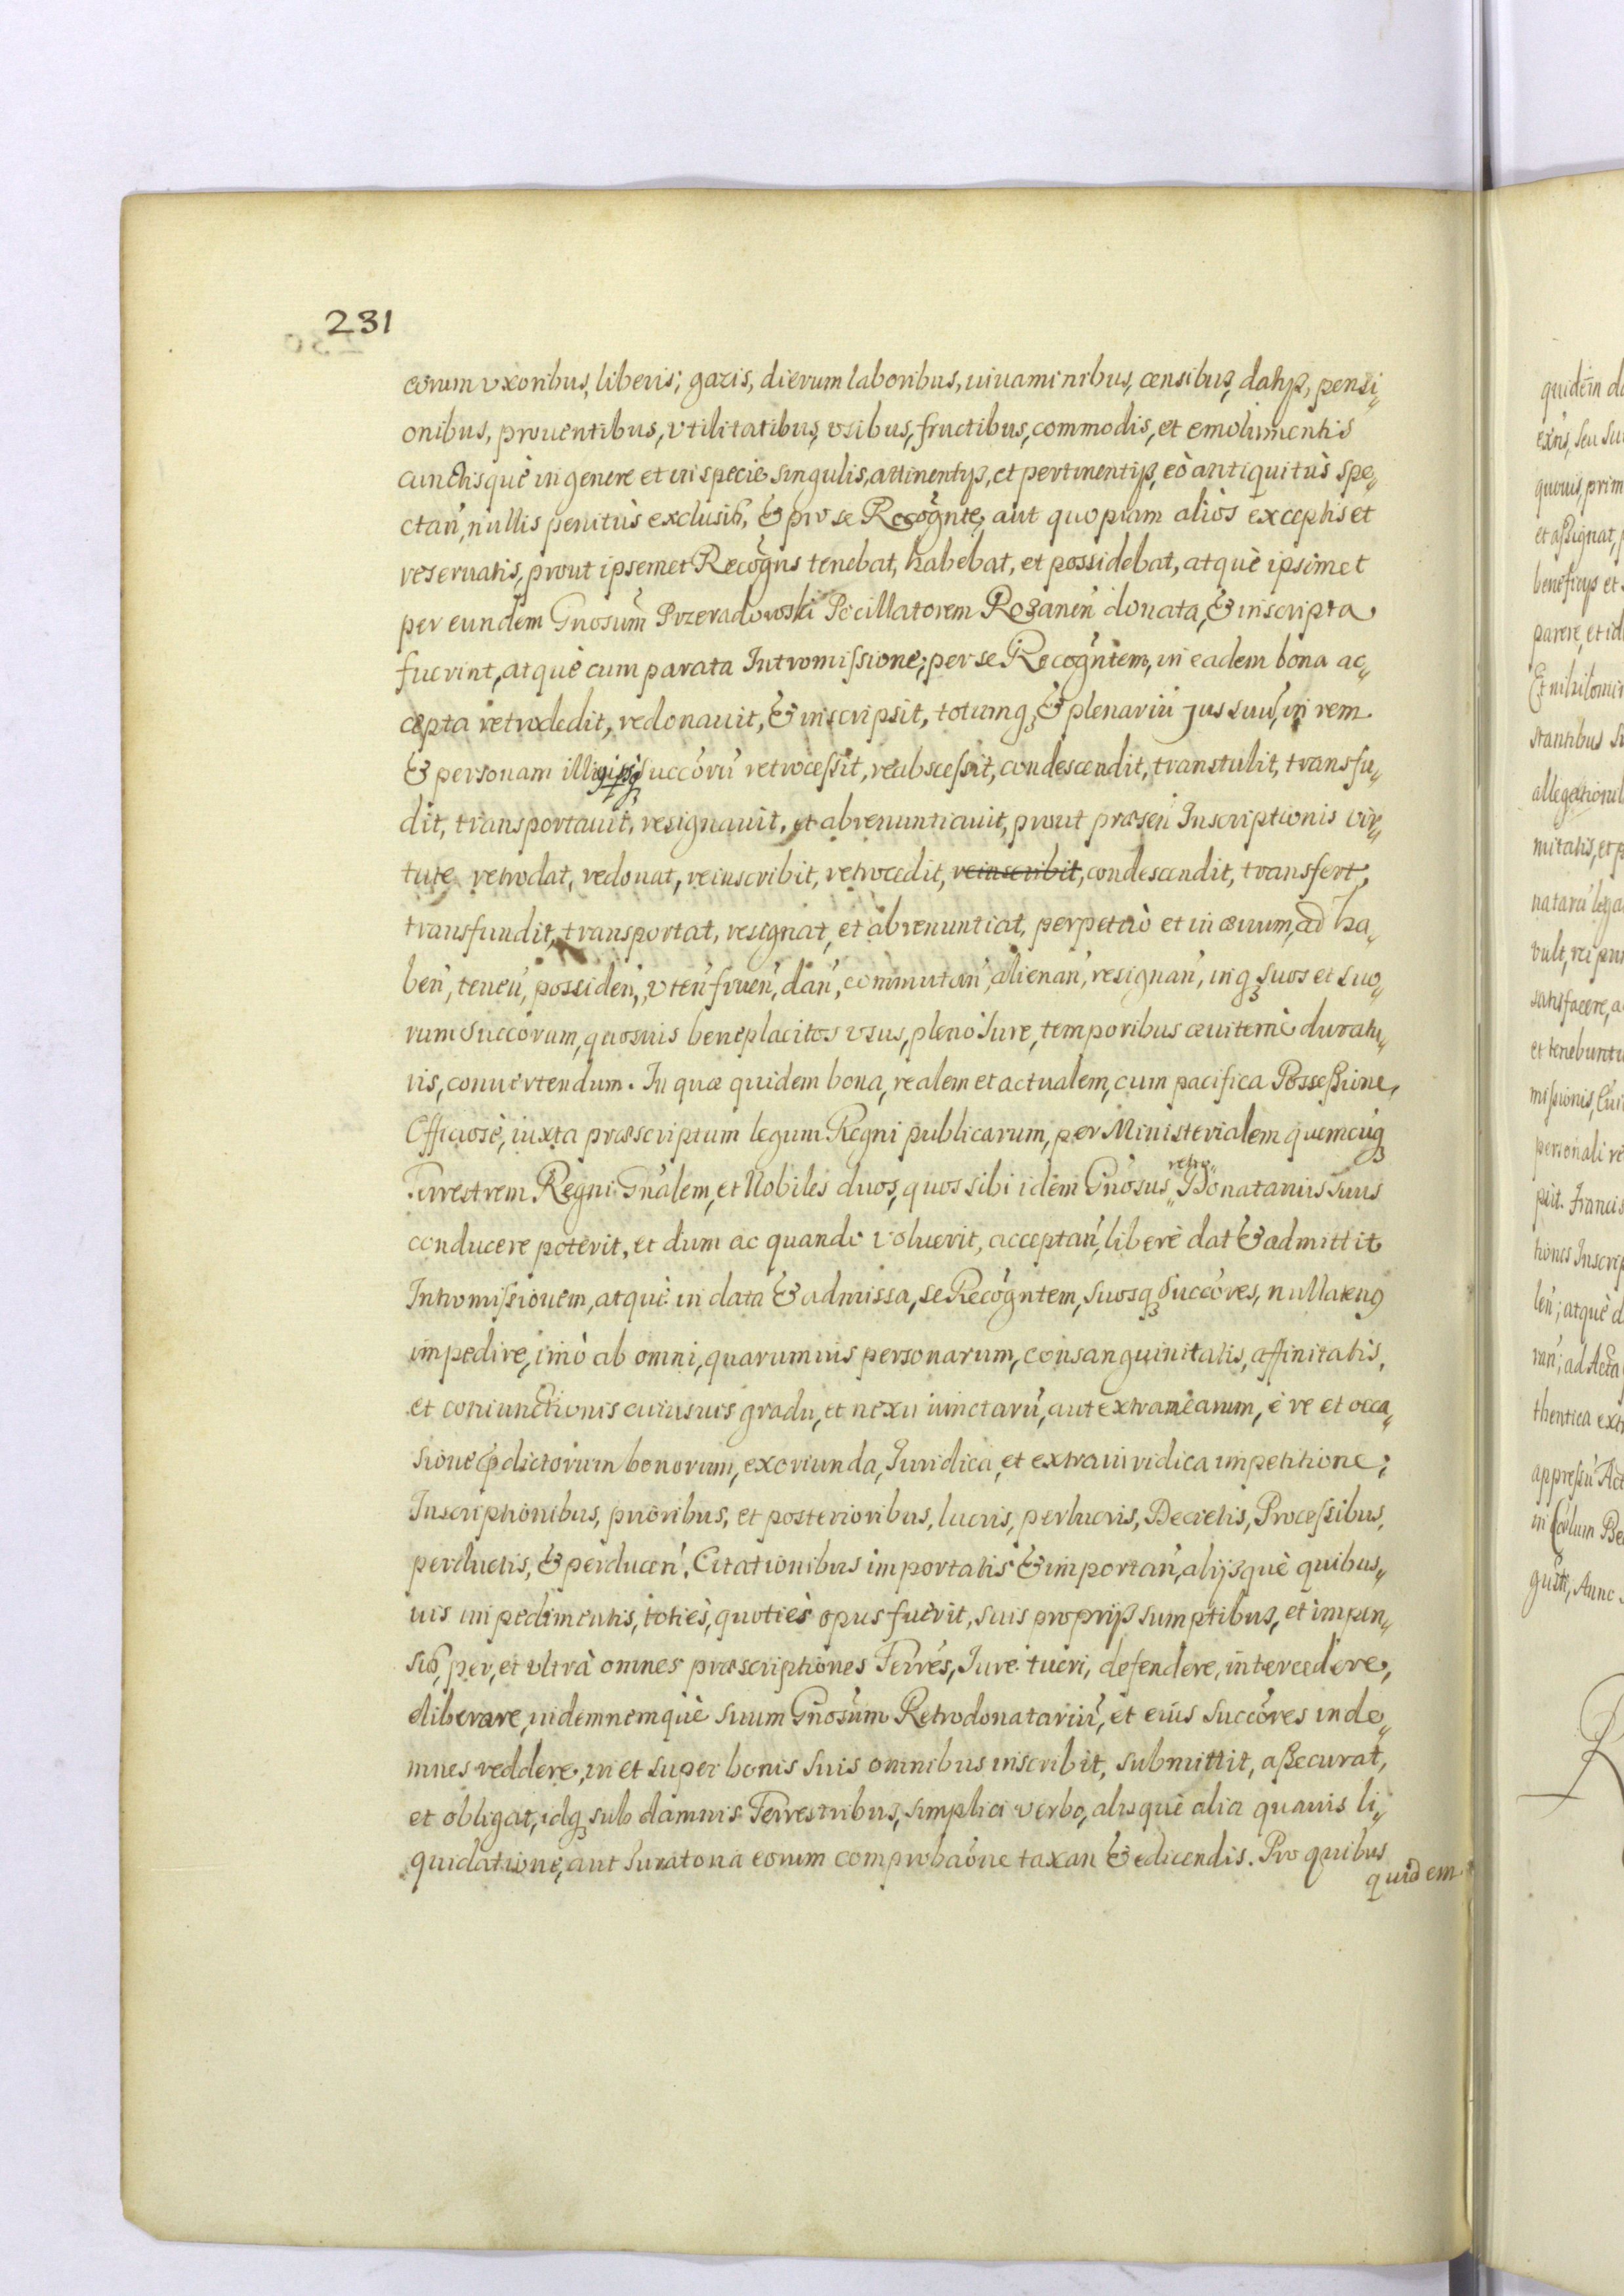 231
eorum vxoribus, liberis; gazis, dierum laboribus, iuuaminibus, censibus, datijs, pensi„
onibus, prouentibus, vtilitatibus, vsibus, fructibus, commodis, et emolumentis
cunctisquè in genere et in specie singulis, attinentijs, et pertinentijs, eò antiquitùs spe„
ctan̄, nullis penitùs exclusis, & pro se Recog̃nte, aut quopiam aliòs exceptis et
reseruatis, prout ipsemet Recog̃ns tenebat, habebat, et possidebat, atquè ipsimet
per eundem Gnosum̄ Przeradowski Pocillatorem Rozanen̄ donata, & inscripta
fuerint, atquè cum parata Intromissione, per se Recog̃ntem, in eadem bona ac„
cepta retrodedit, redonauit, & inscripsit, totumq3 & plenariū jus suū, in rem
& personam illi Succorū retrocessit, reabscessit, condescendit, transtulit, transfu„
dit, transportauit, resignauit, et abrenuntiauit, prout præsen̄ Inscriptionis vir„
tute retrodat, redonat, reinscribit, retrocedit, reinscribit, condescendit, transfert,
transfundit, transportat, resignat, et abrenuntiat, perpetuò et in æuum, ad ha„
ben̄, tenen̄, possiden̄, vten̄ fruen̄, dan̄, commutan̄, alienan̄, resignan̄, inq3 suos et suo„
rum Succorum, quosuis beneplacitos vsus, pleno Iure, temporibus æuiternè duratu„
ris, conuertendum. In quæ quidem bona, realem et actualem, cum pacifica Possessione,
Officiosè, iuxta præscriptum legum Regni publicarum, per Ministerialem quemcuq3
Terrestrem Regni Gnãlem, et Nobiles duos, quos sibi idem Gnosus „retro„ Donatarius suus
conducere poterit, et dum ac quando voluerit, acceptan̄, liberè dat & admittit
Intromissionem, atquè in data & admissa, se Recog̃ntem, suosq3 Succores, nullatenus
impedire, imò ab omni, quarumuis personarum, consanguinitatis, affinitatis,
et coniunctionis cuiusuis gradu, et nexu iunctarū, aut extranearum, è re et occa„
sione p̃dictorum bonorum, exoriunda, Iuridica, et extraiuridica impetitione;
Inscriptionibus, prioribus, et posterioribus, lucris, perlucris, Decretis, Processibus,
perductis, & perducen̄. Citationibus importatis & importan̄, alijsquè quibus„
uis impedimentis, toties, quoties opus fuerit, suis proprijs sumptibus, et impen„
sis, per, et vltrà omnes præscriptiones Terres, Iure tueri, defendere, intercedere,
eliberare, indemnemquè suum Gnosum Retrodonatariū, et eius Succores inde„
mnes reddere, in et super bonis suis omnibus inscribit, submittit, assecurat,
et obligat, idq3 sub damnis Terrestribus, simplici verbo, absquè alia quauis li„
quidatione, aut Iuratoria eorum comprobaone taxan̄ & edicendis. Pro quibus
quidem
quidem
exn̄s, seu
quouis, prim
et assignat,
beneficijs et
parere, et id
Et nihilomin
stantibus
allegationib
mitatis, et
natarū lega
vult, rei
satisfacere, a
et tenebuntu
missionis,
personali re
pūt. Francis
tiones Inscrip
len̄; atquè d
ran̄; ad Acta
thentica extr
appressū Act
in
Anno